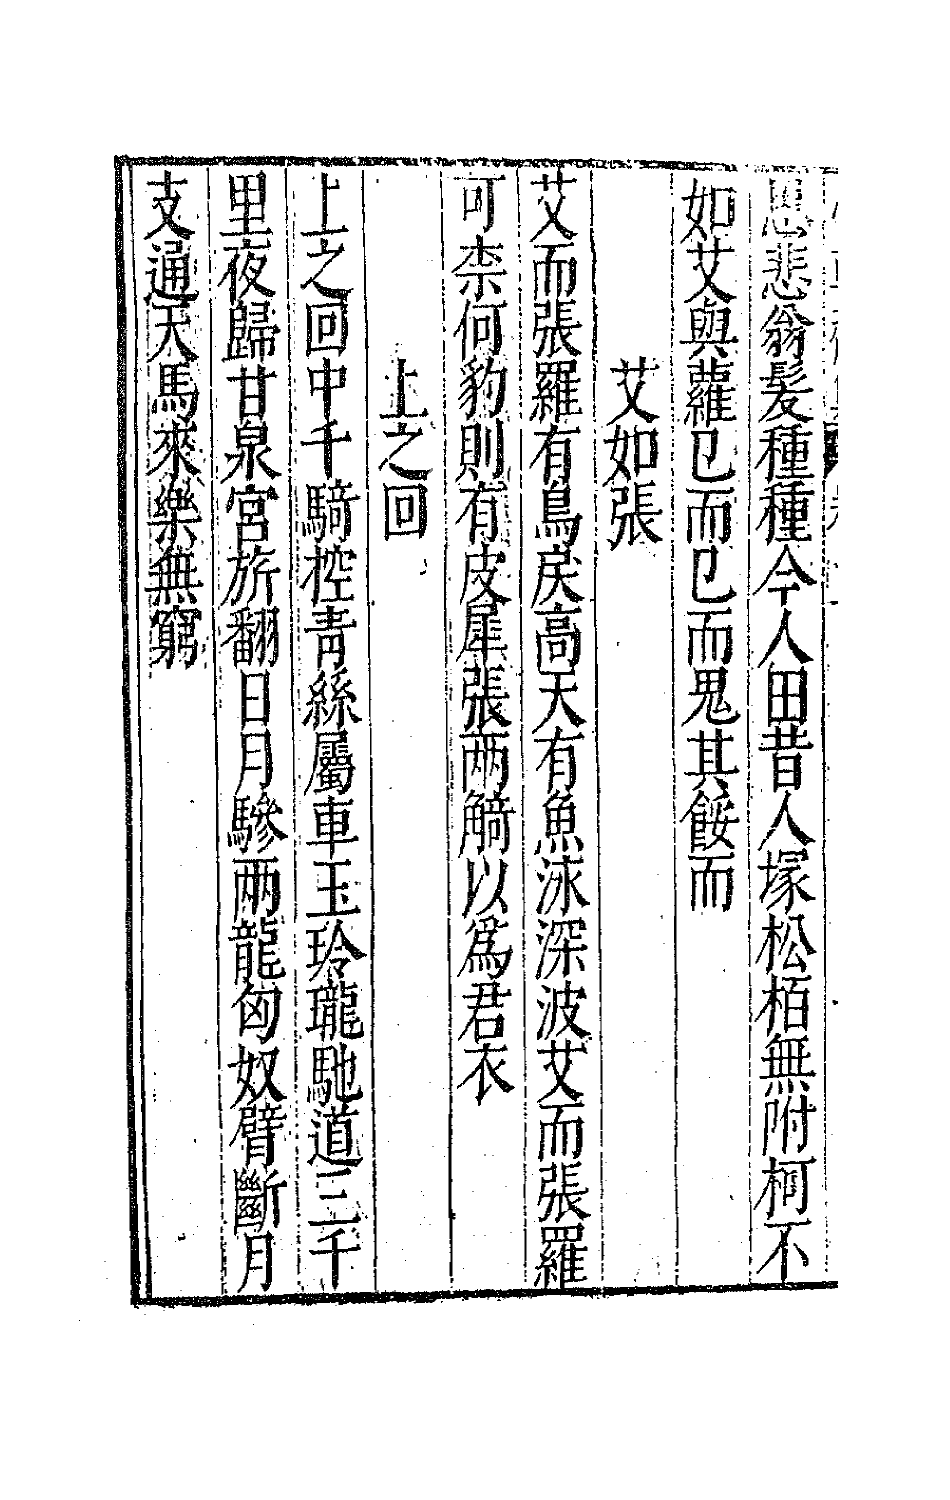 思悲翁髮種種今人田昔人塚松栢無附柯不
如艾與蘿已而已而鬼其餒而
艾如張
艾而張羅有鳥戾高天有魚泳深波艾而張羅
可柰何豹則有皮犀張兩觭以爲君衣
上之回
上之回中千騎控青絲屬車玉玲瓏馳道三千
里夜歸甘泉宮旂翻日月驂兩龍匈奴臂斷月
支通天馬來樂無窮